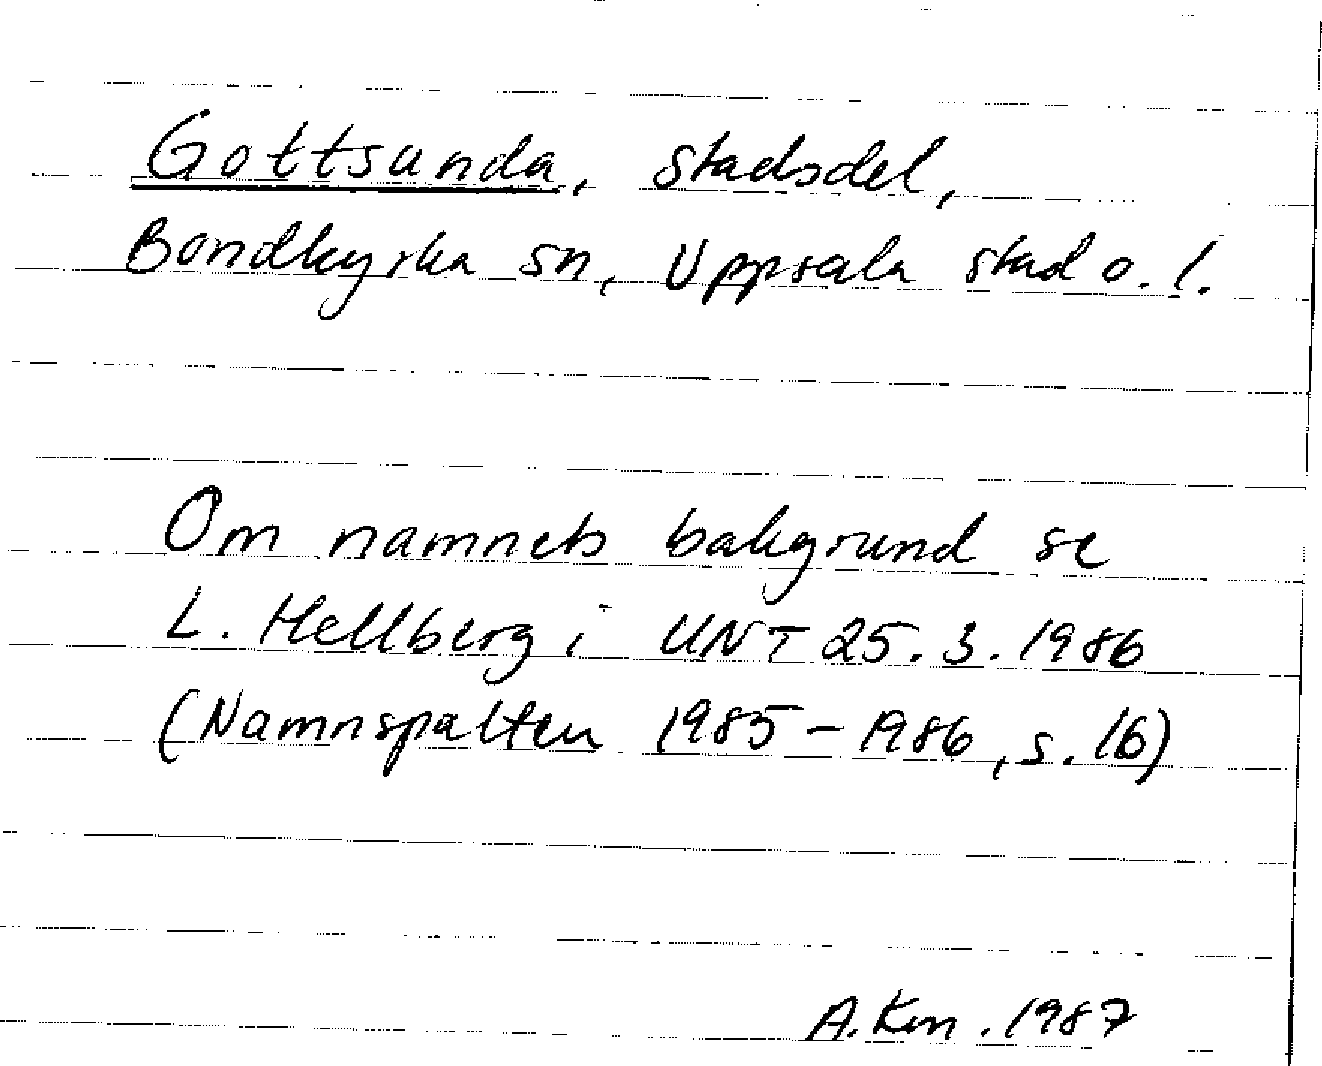 Gottsunda, stadsdel,
Bondkyrka sn, Uppsala stad o. l.
Om namnets bakgrund se
L. Hellberg i UNT 25.3.1986
(Namnspalten 1985-1986, s. 16)
A. Km. 1987